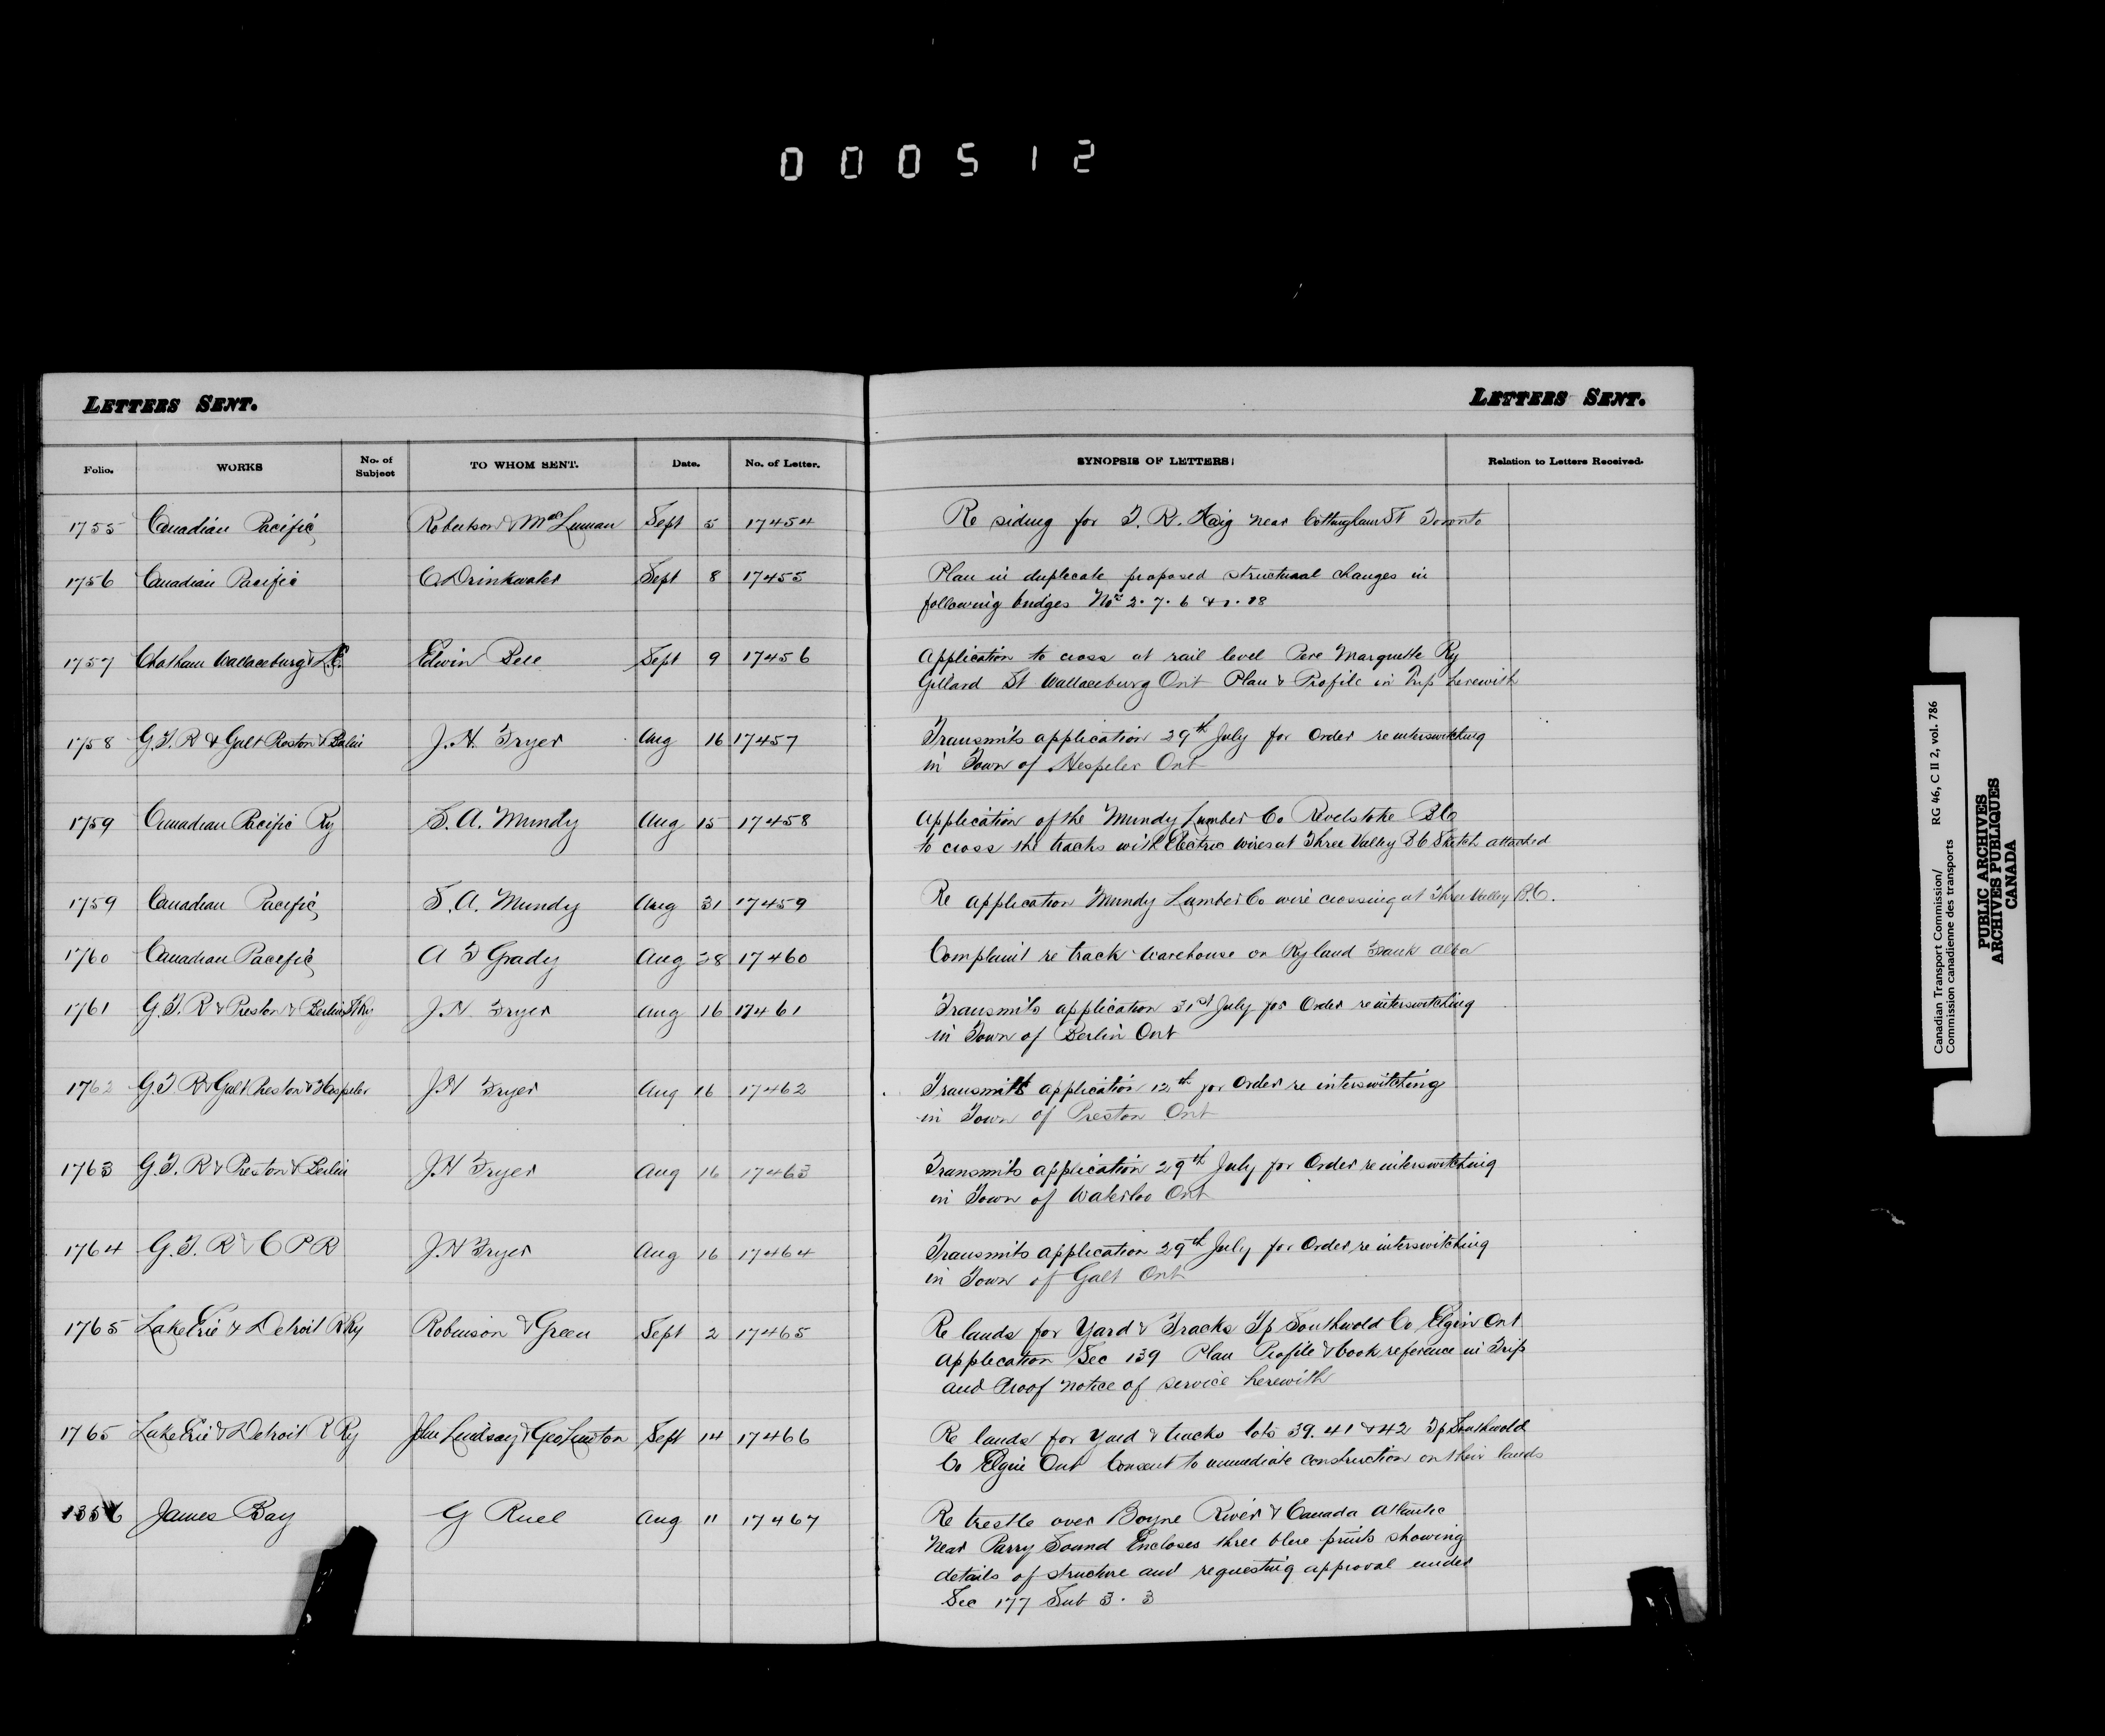 000512
LETTERS SENT.
LETTERS SENT.
Folio. WORKS No. of Subject TO WHOM SENT. Date. No. of Letter. SYNOPSIS OF LETTERS Relation to Letters Received.
1755 Canadian Pacific Robertson & Sept 5 17454 Re siding for Haig near Cottingham St Toronto
1756 Canadian Pacific C Drinkwater Sept 8 17455 Plan in duplicate proposed structural changes in
following bridges Nos 2. 7. 6
1757 Chatham Wallaceburg & L.E. Edwin Bell Sept 9 17456 Application to cross at rail level Pere Marquette Ry
Gillard St Wallaceburg Ont Plan & Profile in Trip herewith
1758 G.T.R & Galt Preston & Berlin J.H. Fryer Aug 16 17457 Transmits application 29th July for Order re interswitching
in Town of Hespeler Ont
1759 Canadian Pacific Ry S.A. Mundy Aug 15 17458 Application of the Mundy Lumber Co Revelstoke BC
to cross the tracks with Electric wires at Three Valley BC Sketch attached
1759 Canadian Pacific S.A. Mundy Aug 31 17459 Re application Mundy Lumber Co wire crossing at Three Valley B.C.
1760 Canadian Pacific A T Grady Aug 28 17460 Complaint re track warehouse on Ry land Frank Alba
1761 G.T.R & Preston & Berlin St Ry J.H. Fryer Aug 16 17461 Transmits application 31st July for Order re interswitching
in Town of Berlin Ont
1762 G.T.R & Galt Preston & Hespeler J.H Fryer Aug 16 17462 Transmits application 12th for Order re interswitching
in Town of Preston Ont
1763 G.T.R & Preston & Berlin J.H Fryer Aug 16 17463 Transmits application 29th July for Order re interswitching
in Town of Waterloo Ont
1764 G.T.R & C P R J.H Fryer Aug 16 17464 Transmits application 29th July for Order re interswitching
in Town of Galt Ont
1765 Lake Erie & Detroit R Ry Robinson & Green Sept 2 17465 Re lands for Yard & Tracks Tp Southwold Co Elgin Ont
Application Sec 139 Plan Profile & book reference in Trip
and Proof notice of service herewith
1765 Lake Erie & Detroit R Ry John Lindsay & Geo Sept 14 17466 Re lands for Yard & tracks lots 39. 41 & 42 Tp Southwold
Co Elgin Ont Consent to immediate construction on their lands
1356 James Bay G Ruel Aug 11 17467 Re trestle over Boyne River & Canada Atlantic
near Parry Sound Encloses three blue prints showing
details of structure and requesting approval under
Sec 177 Sub 3. 3
Canadian Transport Commission/ RG 46, C II 2, vol. 786
Commission canadienne des transports
PUBLIC ARCHIVES
ARCHIVES PUBLIQUES
CANADA